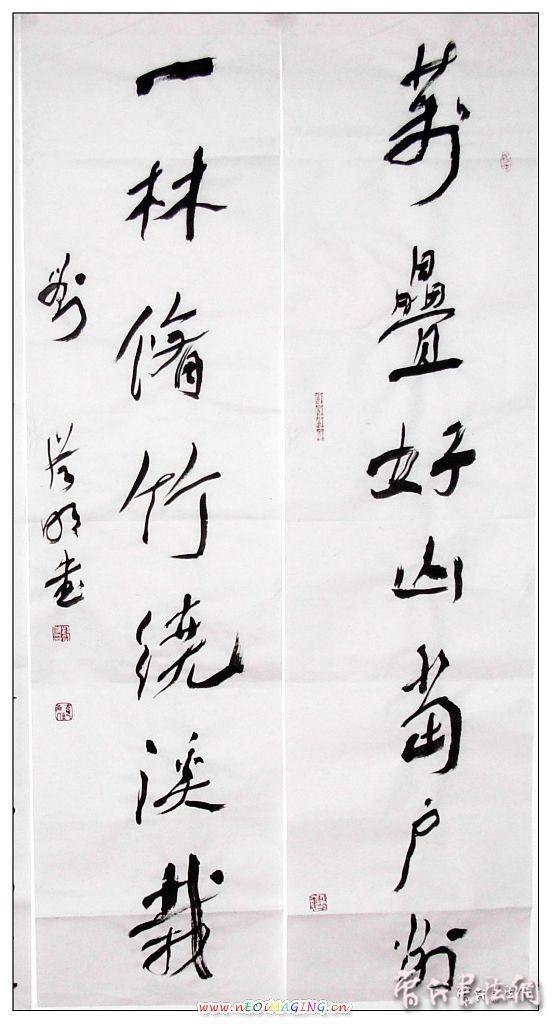 萬疊好山當户對
一林脩竹繞溪栽
書
www.nEOiMAGiNG.cn